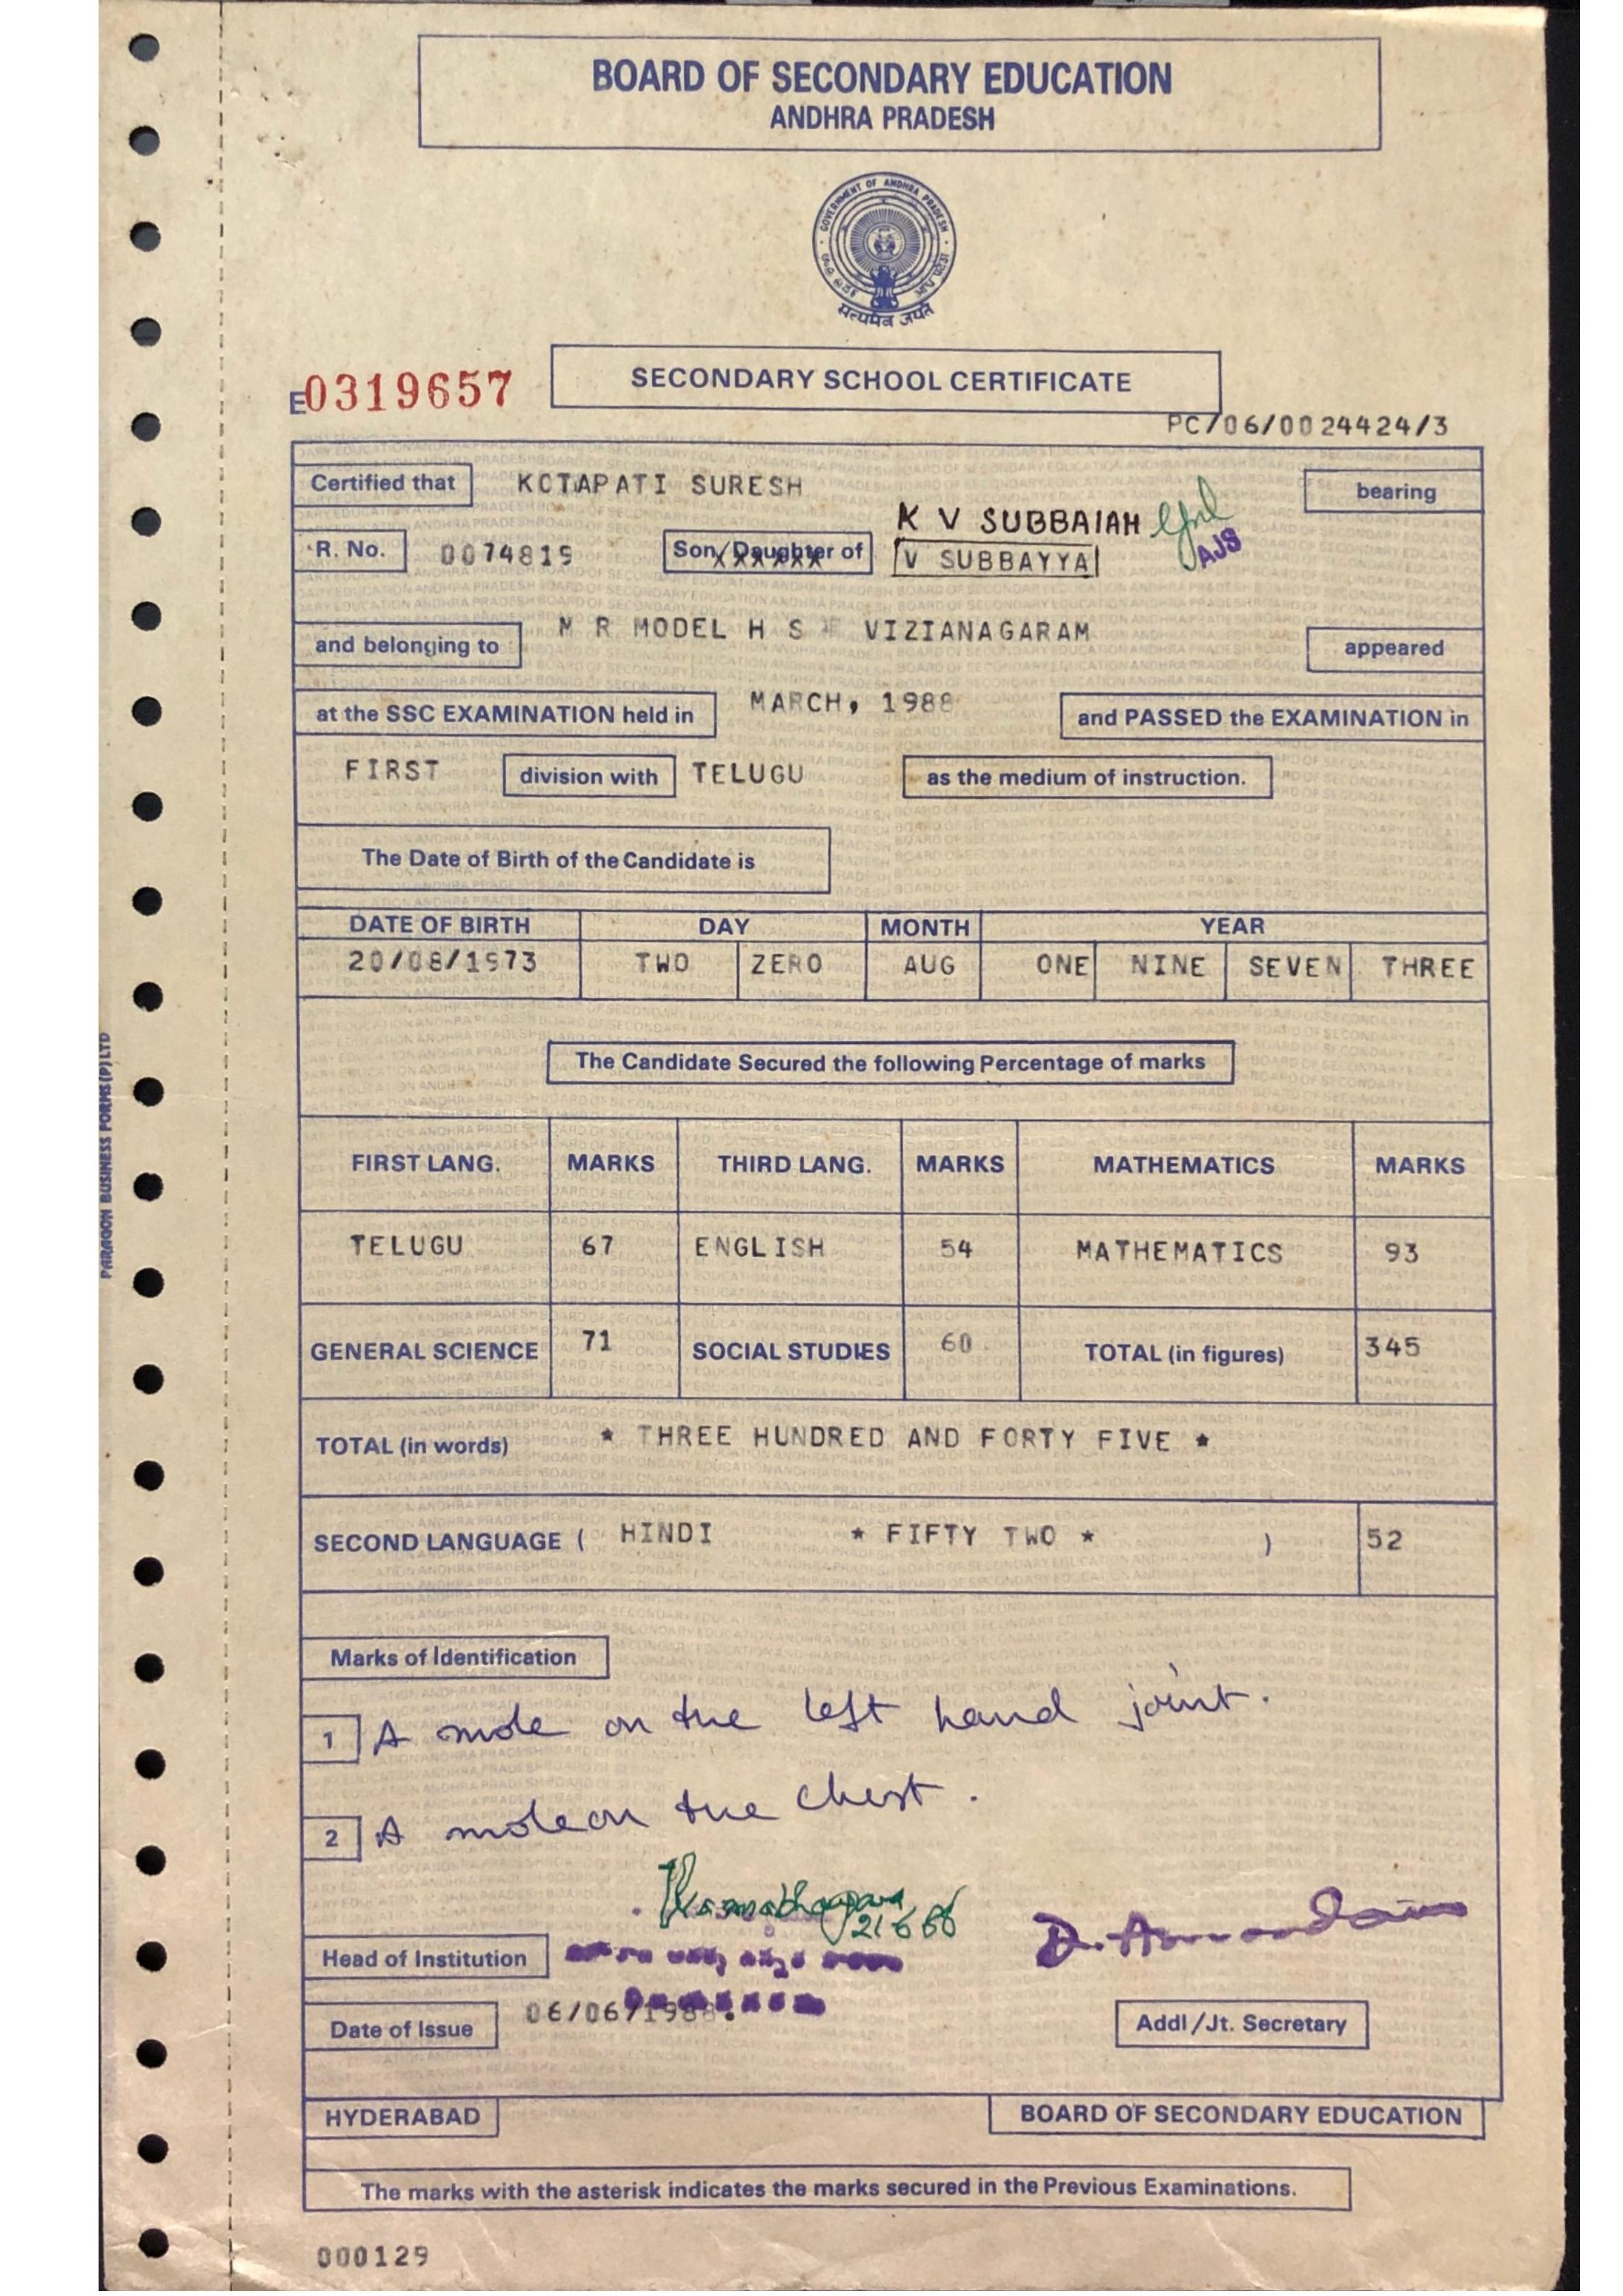 BOARD OF SECONDARY EDUCATION
ANDHRA PRADESH
GOVERNMENT OF ANDHRA PRADESH
सत्यमेव जयते
E0319657
SECONDARY SCHOOL CERTIFICATE
PC/06/0024424/3
Certified that KOTAPATI SURESH bearing
K V SUBBAIAH
R. No. 0074819 Son/Daughter of V SUBBAYYA AJS
and belonging to M R MODEL H S VIZIANAGARAM appeared
at the SSC EXAMINATION held in MARCH, 1988 and PASSED the EXAMINATION in
FIRST division with TELUGU as the medium of instruction.
The Date of Birth of the Candidate is
DATE OF BIRTH DAY MONTH YEAR
20/08/1973 TWO ZERO AUG ONE NINE SEVEN THREE
The Candidate Secured the following Percentage of marks
FIRST LANG. MARKS THIRD LANG. MARKS MATHEMATICS MARKS
TELUGU 67 ENGLISH 54 MATHEMATICS 93
GENERAL SCIENCE 71 SOCIAL STUDIES 60 TOTAL (in figures) 345
TOTAL (in words) * THREE HUNDRED AND FORTY FIVE *
SECOND LANGUAGE ( HINDI * FIFTY TWO * ) 52
Marks of Identification
1 A mole on the left hand joint.
2 A mole on the chest.
Head of Institution
Date of Issue 06/06/1988. Addl/Jt. Secretary
HYDERABAD BOARD OF SECONDARY EDUCATION
The marks with the asterisk indicates the marks secured in the Previous Examinations.
000129
PARAGON BUSINESS FORMS (P) LTD